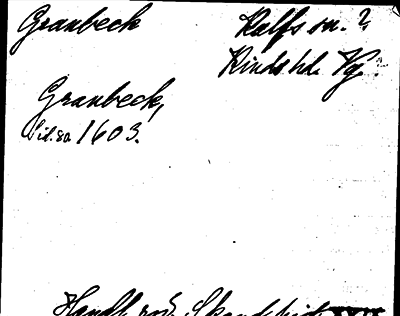 Granbeck Kalfs sn.?
Kinds hd. Vg.
Granbeck,
Sil.sa 1603.
Handl. rör. Skand. hist.